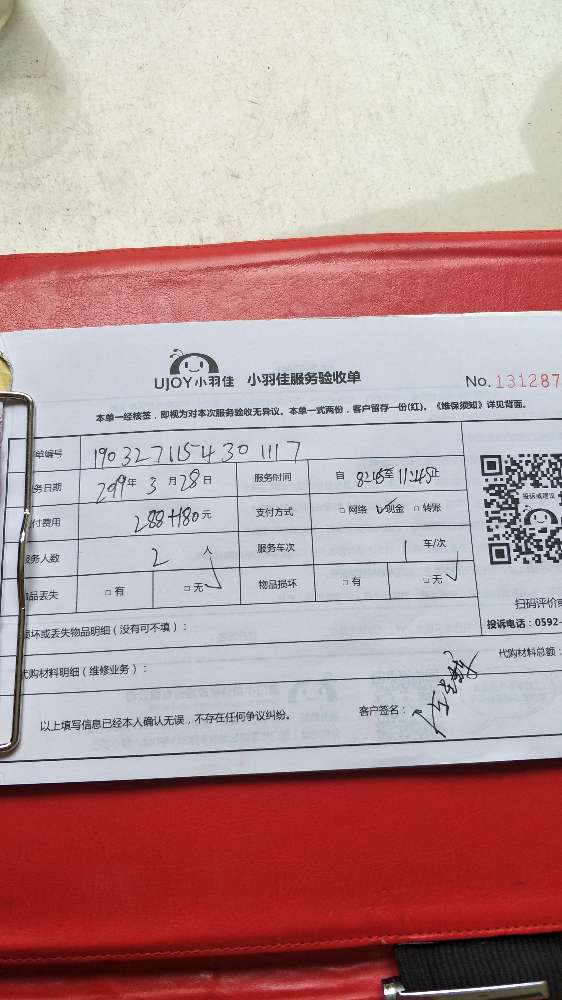 UJOY小羽佳 小羽佳服务验收单 No. 131287
本单一经核签，即视为对本次服务验收无异议。本单一式两份，客户留存一份(红)。《维保须知》详见背面。
单编号 1903271154301117
务日期 2019年 3月 28日 服务时间 自 8:45至 11:45止
付费用 288+180元 支付方式 □网络 ☑现金 □转账
服务人数 2 人 服务车次 1 车/次
品丢失 □有 □无✓ 物品损坏 □有 □无✓
投诉或建议
扫码评价或
投诉电话：0592-
损坏或丢失物品明细（没有可不填）：
代购材料明细（维修业务）： 代购材料总额：
以上填写信息已经本人确认无误，不存在任何争议纠纷。 客户签名：